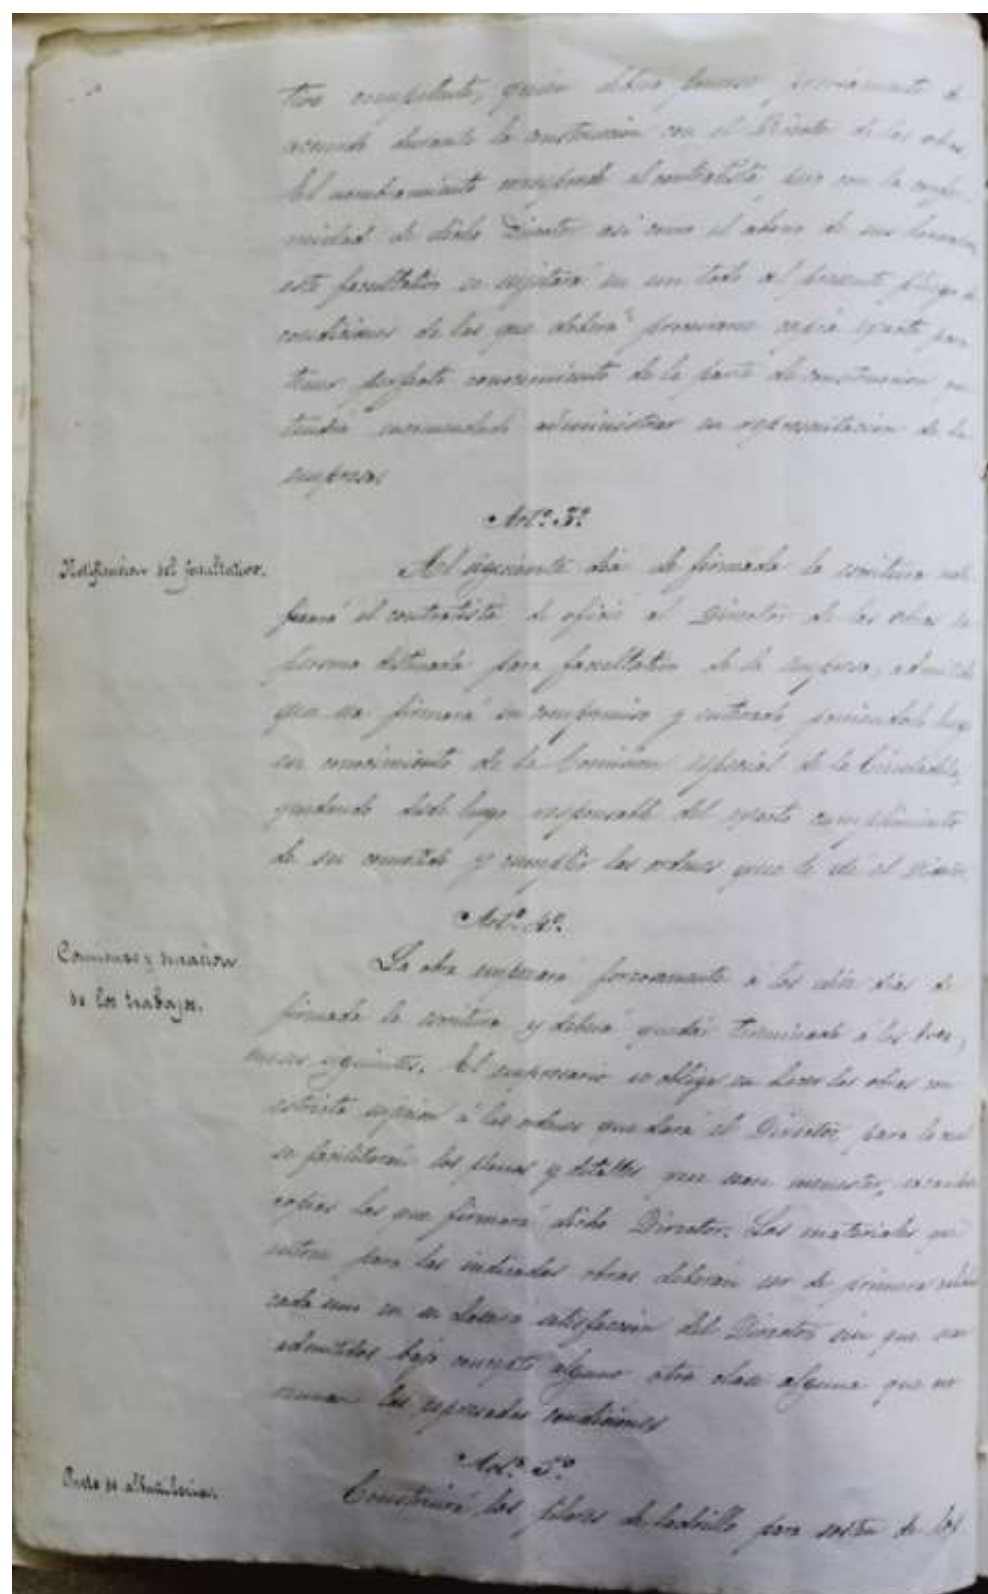 tivo competente, quien deberá ponerse previamente de
acuerdo durante la construccion con el Director de las obras.
El nombramiento corresponde al contratista, pero con la confor-
midad de dicho Director asi como el abono de sus honorarios
este facultativo se sujetará en un todo al presente pliego de
condiciones de las que deberá procurarse copia exacta para
tener perfecto conocimiento de la parte de construccion que
tendrá encomendada administrar en representacion de la
empresa.
Artº 3º
Notificacion del facultativo.
Al siguiente dia de firmada la escritura
el contratista de oficio al Director de las obras la
persona destinada para facultativo de la empresa,
que firmará su compromiso y enterado poniendolo luego
en conocimiento de la Comision especial de la Ciudadela,
quedando desde luego responsable del exacto cumplimiento
de su cometido y cumplir las ordenes que le dé el Director.
Artº 4º
Comienzo y duracion
de los trabajos.
La obra empezará forzosamente a los diez dias de
firmada la escritura y deberá quedar terminada a los tres
meses siguientes. El empresario se obliga en hacer las obras con
estricta sujecion á las ordenes que dará el Director, para lo cual
se facilitarán los planos y detalles que sean menester, sacando
copias las que firmará dicho Director. Los materiales que
entren para las indicadas obras deberán ser de primera calidad
cada uno en su clase a satisfaccion del Director sin que sean
admitidos bajo concepto alguno otra clase alguna que no
reunan las expresadas condiciones
Artº 5º
Parte de albañileria.
Construirá los pilares de ladrillo para sosten de los